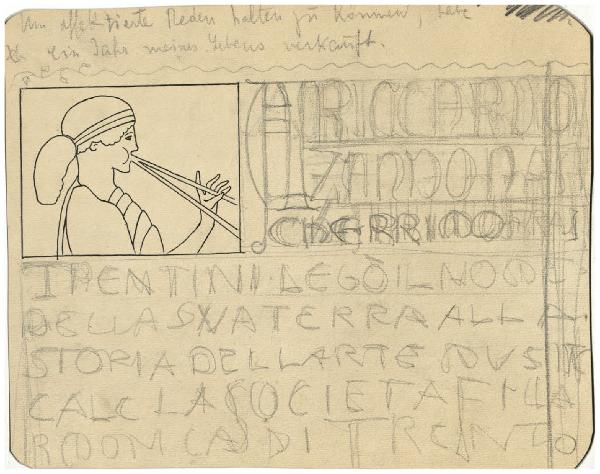 Um effektzierte Reden halten zu können, habe
ich ein Jahr meines Lebens verkauft.
A RICCARDO
ZANDONAI
CHE
TRENTINI LEGÒ IL NOME
DELLA SVA TERRA ALLA
STORIA DELL ARTE MVSI
CALE LA SOCIETA FILA
RMONICA DI TRENTO